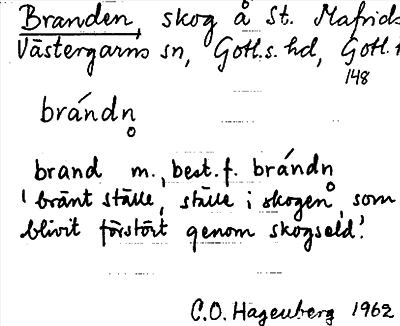 Branden, skog å St. Mafrids
Västergarns sn, Gotl.s. hd, Gotl.
148
brándn̥
brand m., best. f. brándn̥
'bränt ställe, ställe i skogen, som
blivit förstört genom skogseld'.
C.O. Hagenberg 1962